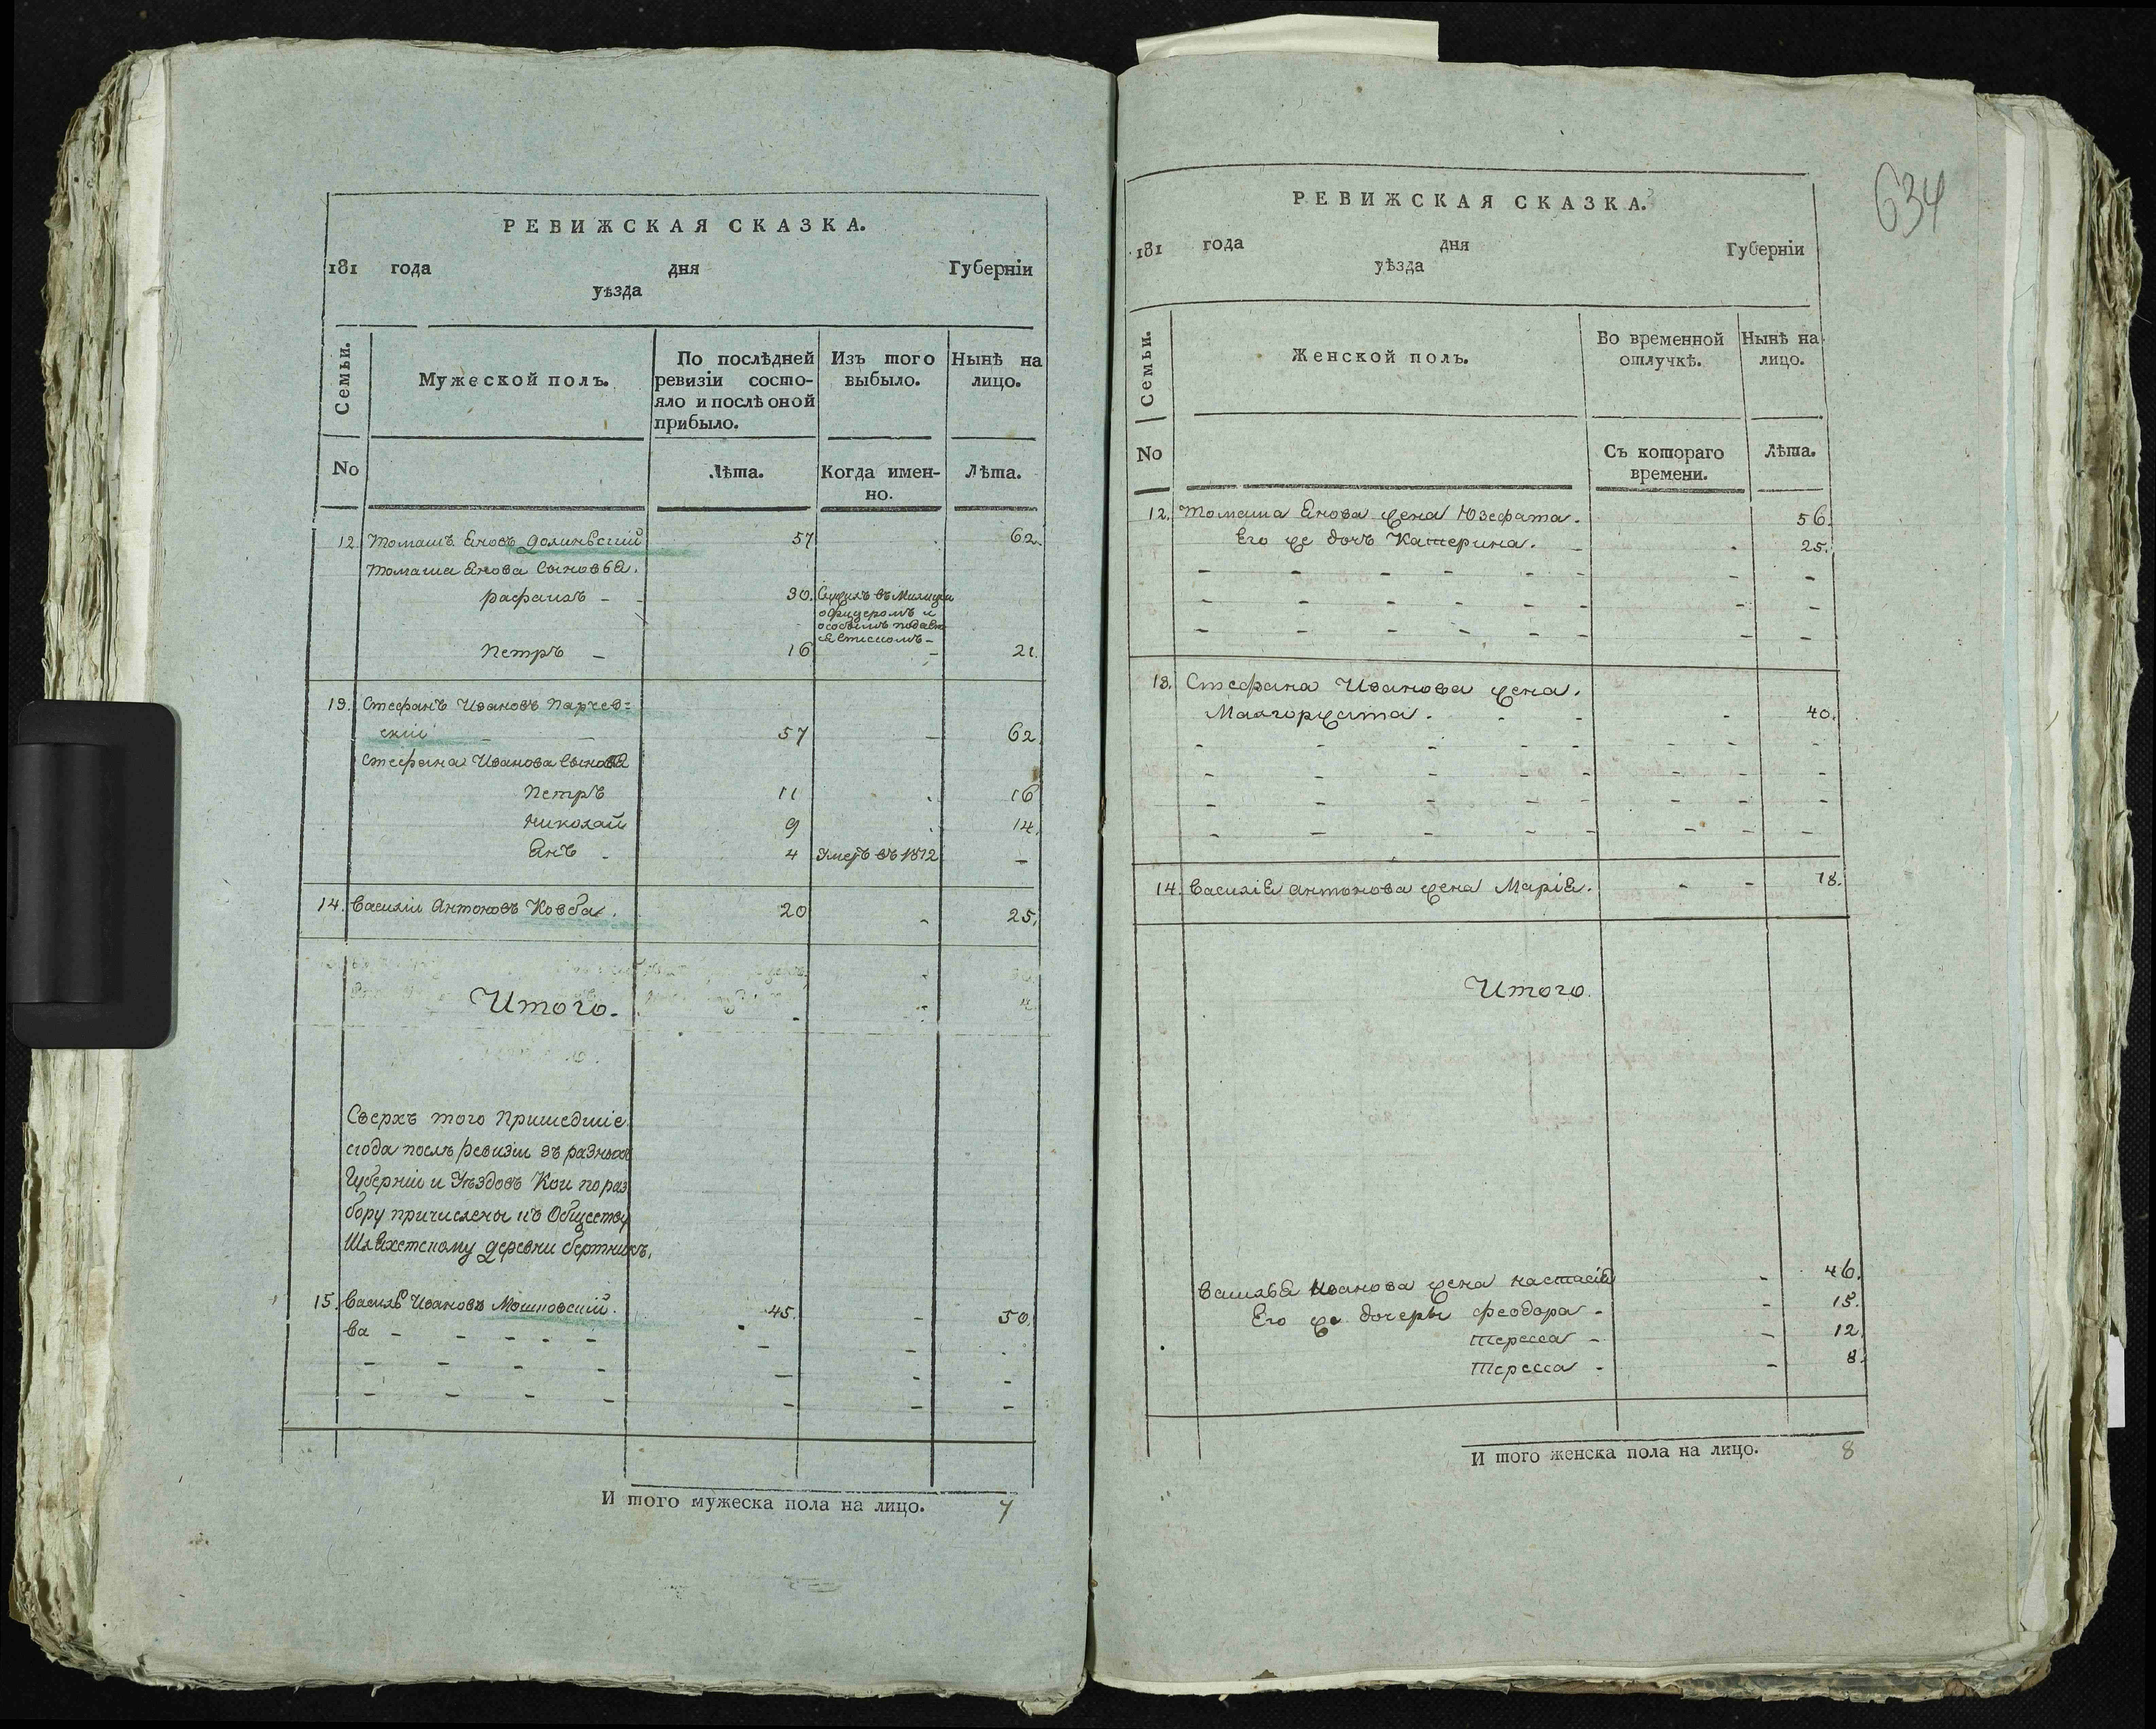 РЕВИЖСКАЯ СКАЗКА.
181 года дня Губерніи
уѣзда
Семьи.
Мужеской полъ.
По послѣдней ревизіи состо-
яло и послѣ оной
прибыло.
Изъ того
выбыло.
Нынѣ на
лицо.
No
Лѣта.
Когда имен-
но.
Лѣта.
12. Томашъ Яновъ Долиньскій 57 62.
Томаша Янова сыновья.
рафаилъ - - 30. Служилъ въ Милиціи
офицеромъ и
особымъ
Петръ - 16 - 21.
13. Стефанъ Ивановъ Парчев=
скій - - 57 - 62.
Стефана Иванова сыновья
Петръ 11 16
Николай 9 14.
Янъ - 4 Умеръ въ 1812 -
14. Василій Антоновъ Ковба. 20 - 25.
Итого.
Сверхъ того Пришедшіе
сюда послѣ ревизіи зъ разныхъ
Губерніи и Уѣздовъ Кои по раз
бору причислены къ Обществу
Шляхетскому деревни бертникъ.
15. Василь Ивановъ Мошковскій. 45. - 50.
Ва - - - - -
И того мужеска пола на лицо. 7
634
РЕВИЖСКАЯ СКАЗКА.
181 года дня Губерніи
уѣзда
Семьи.
Женской полъ.
Во временной
отлучкѣ.
Нынѣ на
лицо.
No
Съ котораго
времени.
Лѣта.
12. Томаша Янова жена Юзефата. 56.
Его же дочь Катерина. - 25.
13. Стефана Иванова жена.
Малгоржата. - - - 40.
14. Василія Антонова жена Марія. - - 18.
Итого.
Василья Иванова жена настасія - 46.
Его же дочеры феодора - - 15.
Тересса - - 12.
Тересса - - 8.
И того женска пола на лицо. 8